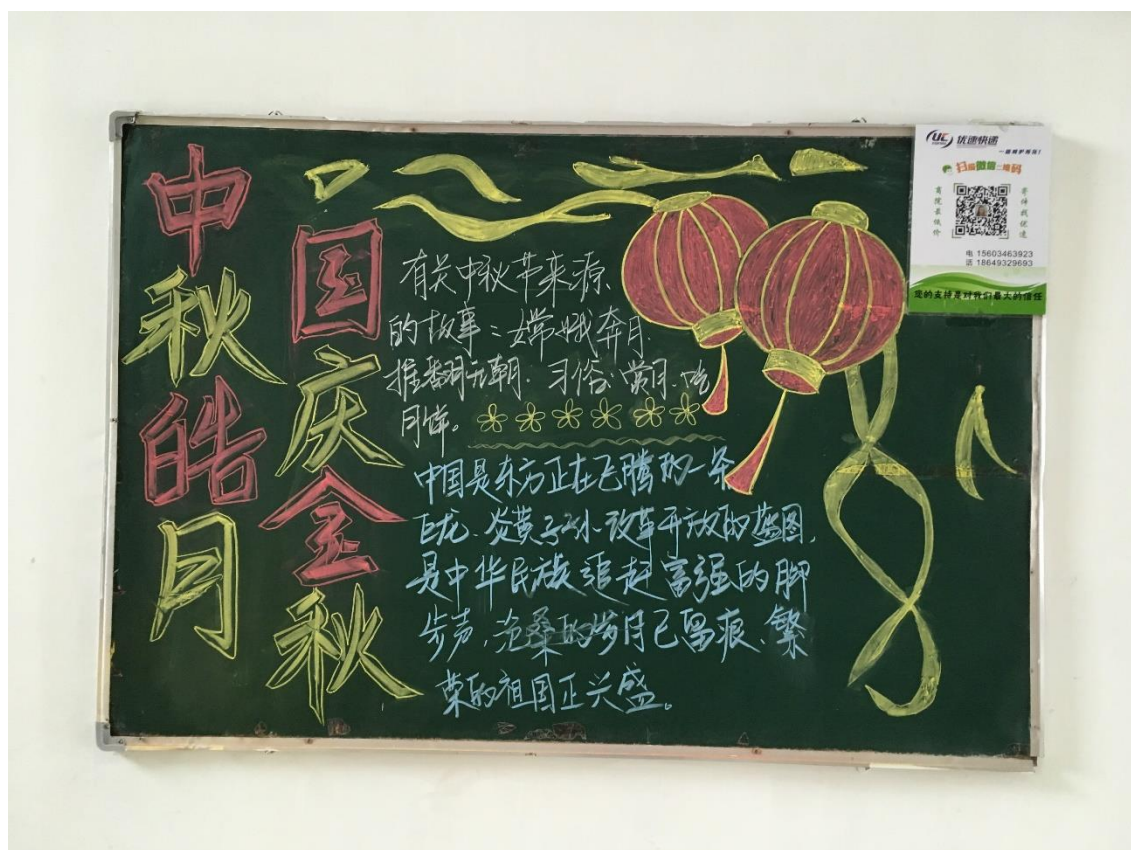 中秋皓月
国庆金秋
有关中秋节来源
的故事：嫦娥奔月
推翻元朝.习俗:赏月.吃
月饼。
中国是东方正在飞腾的一条
巨龙、炎黄子孙改革开放的蓝图,
是中华民族追赶富强的脚
步声,沧桑的岁月已留痕、繁
荣的祖国正兴盛。
UC 优速快递
一路呵护相随!
扫描微信二维码
商院最低价
寄件找优速
电 15603463923
话 18649329693
您的支持是对我们最大的信任